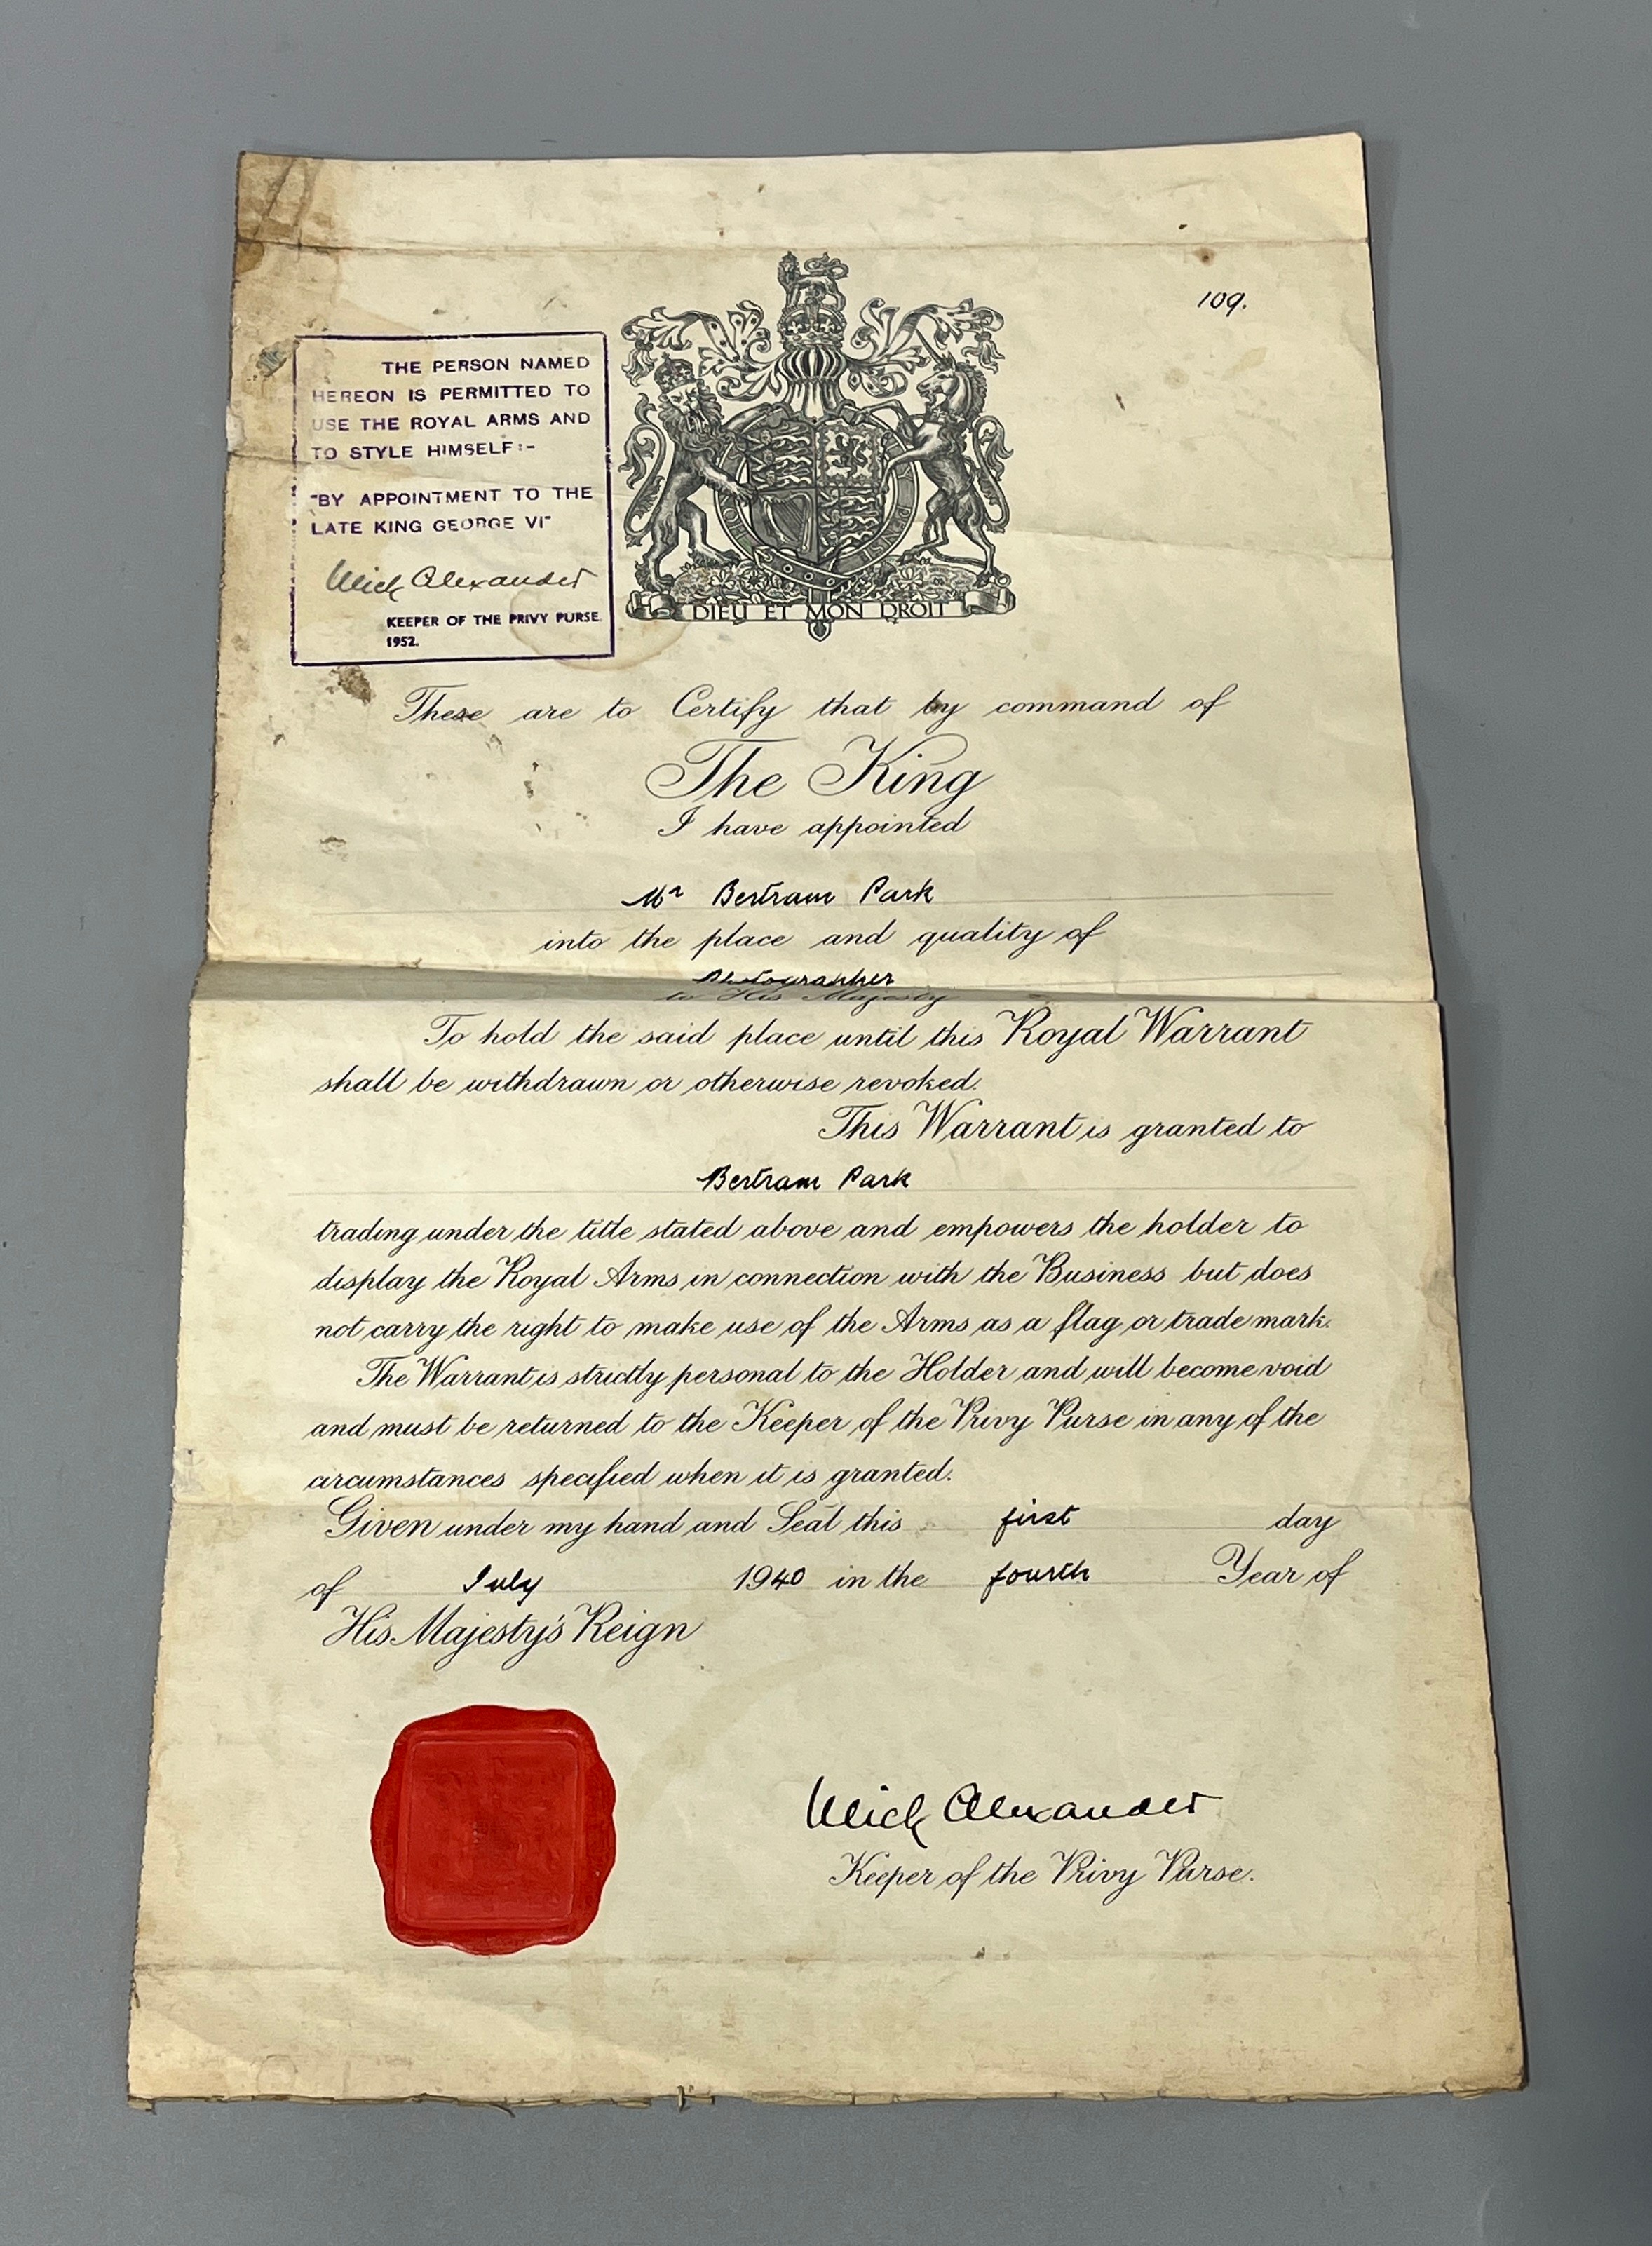 109.
THE PERSON NAMED
HEREON IS PERMITTED TO
USE THE ROYAL ARMS AND
TO STYLE HIMSELF:-
"BY APPOINTMENT TO THE
LATE KING GEORGE VI"
Ulick Alexander
KEEPER OF THE PRIVY PURSE.
1952.
DIEU ET MON DROIT
These are to Certify that by command of
The King
I have appointed
Mr Bertram Park
into the place and quality of
Photographer
to His Majesty
To hold the said place until this Royal Warrant
shall be withdrawn or otherwise revoked.
This Warrant is granted to
Bertram Park
trading under the title stated above and empowers the holder to
display the Royal Arms in connection with the Business but does
not carry the right to make use of the Arms as a flag or trade mark.
The Warrant is strictly personal to the Holder and will become void
and must be returned to the Keeper of the Privy Purse in any of the
circumstances specified when it is granted.
Given under my hand and Seal this first day
of July 1940 in the fourth Year of
His Majesty's Reign
Ulick Alexander
Keeper of the Privy Purse.